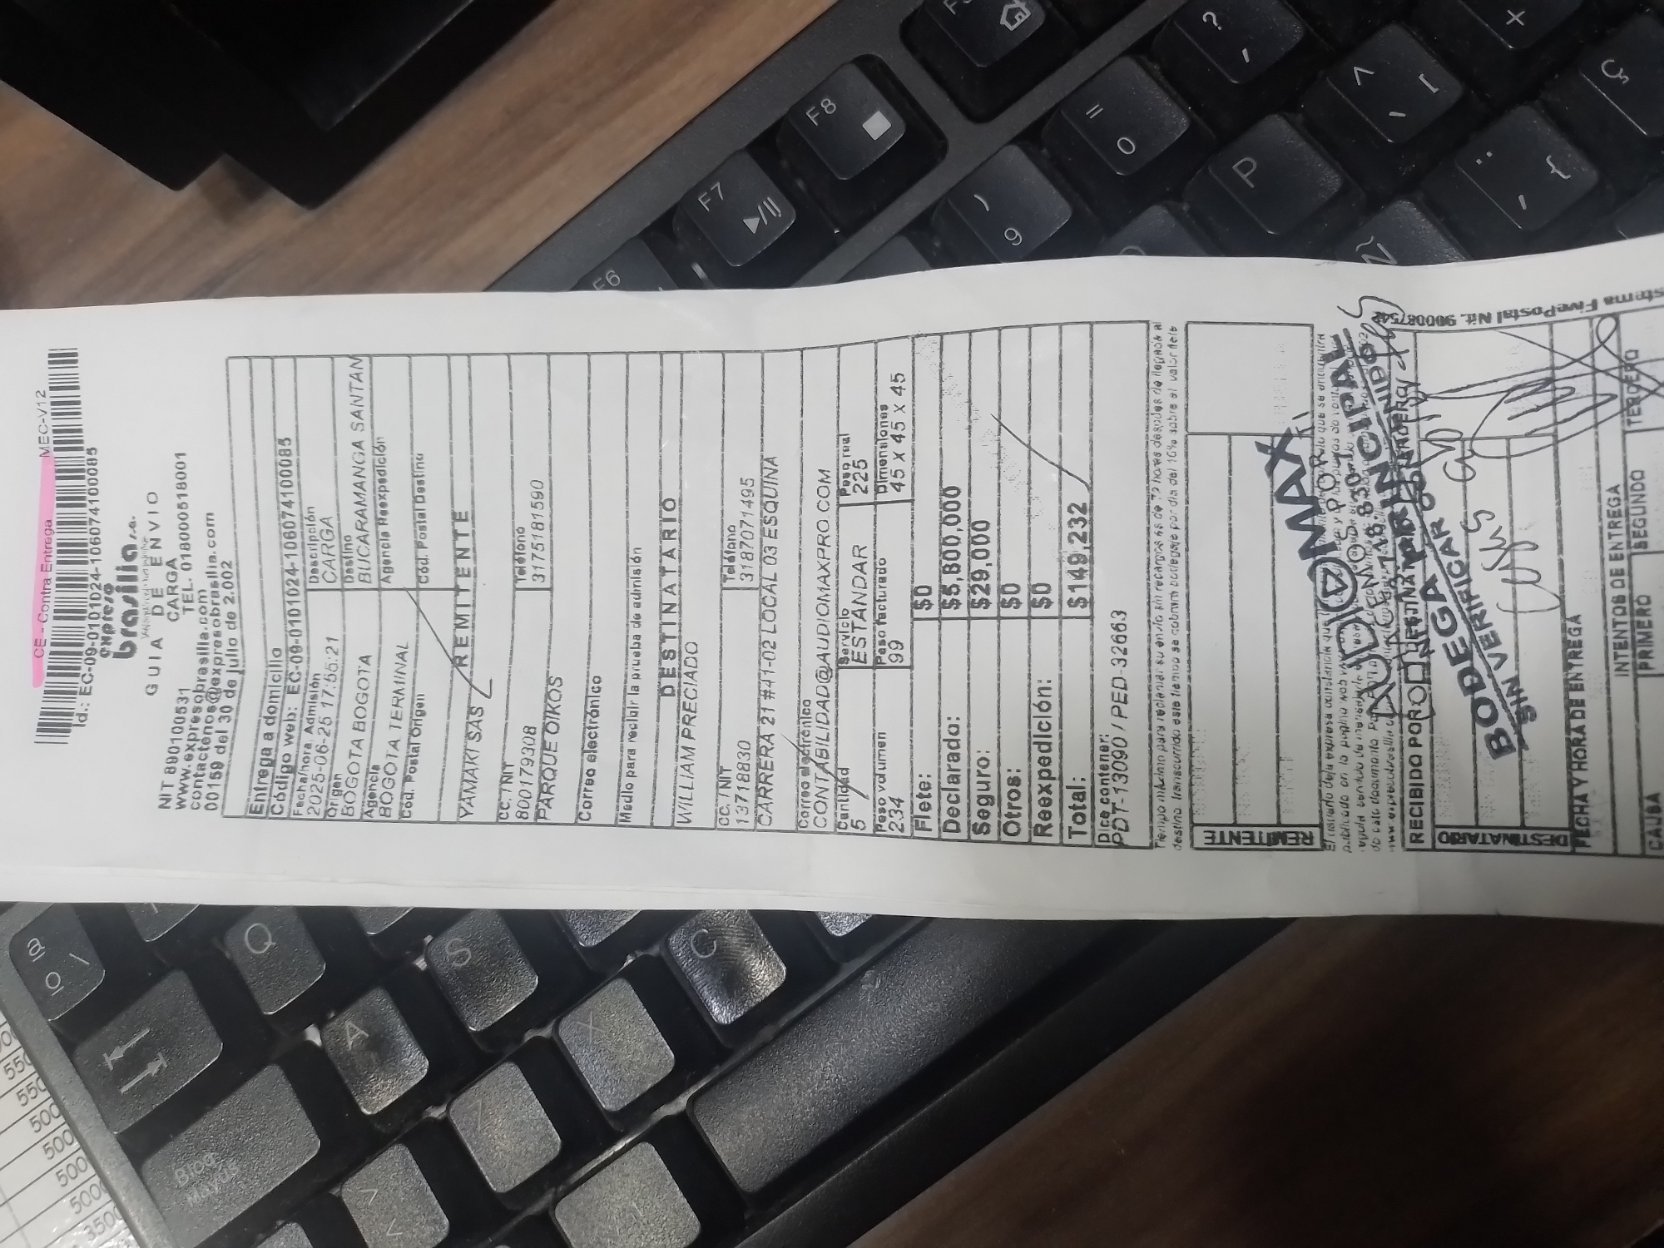 CE - Contra Entrega MEC-V12
Id.: EC-09-0101024-106074100085
expreso
brasilia s.a.
GUIA DE ENVIO
CARGA
NIT 890100531 TEL. 018000518001
www.expresobrasilia.com
contactenos@expresobrasilia.com
00159 del 30 de julio de 2.002
Entrega a domicilio
Código Web: EC-09-0101024-106074100085
Fecha/hora Admisión Descripción
2025-06-25 17:55:21 CARGA
Origen Destino
BOGOTA BOGOTA BUCARAMANGA SANTAN
Agencia Agencia Reexpedición
BOGOTA TERMINAL
Cód. Postal Origen Cód. Postal Destino
REMITENTE
YAMAKI SAS
CC. / NIT Teléfono
800179308 3175181590
PARQUE OIKOS
Correo electrónico
Medio para recibir la prueba de admisión
DESTINATARIO
WILLIAM PRECIADO
CC. / NIT Teléfono
13718830 3187071495
CARRERA 21 #41-02 LOCAL 03 ESQUINA
Correo electrónico
CONTABILIDAD@AUDIOMAXPRO.COM
Cantidad Servicio Peso real
5 ESTANDAR 225
Peso volumen Peso facturado Dimensiones
234 99 45 X 45 X 45
Flete: $0
Declarado: $5,800,000
Seguro: $29,000
Otros: $0
Reexpedición: $0
Total: $149,232
Dice contener:
PDT-13090 / PED-32663
Tiempo máximo para reclamar su envío sin recargos es de 72 horas después de llegada al
destino, transcurrido este tiempo se cobrará bodegaje por día del 10% sobre el valor flete
REMITENTE
RECIBIDO POR
BODEGA PRINCIPAL
SIN VERIFICAR CONTENIDO
DESTINATARIO
FECHA Y HORA DE ENTREGA
INTENTOS DE ENTREGA
PRIMERO SEGUNDO TERCERO
CAUSA
Sistema FivePostal Nit. 900087542
F6
F7
F8
?
=
0
)
9
P
Q
A
S
Z
X
C
Bloq
Mayús